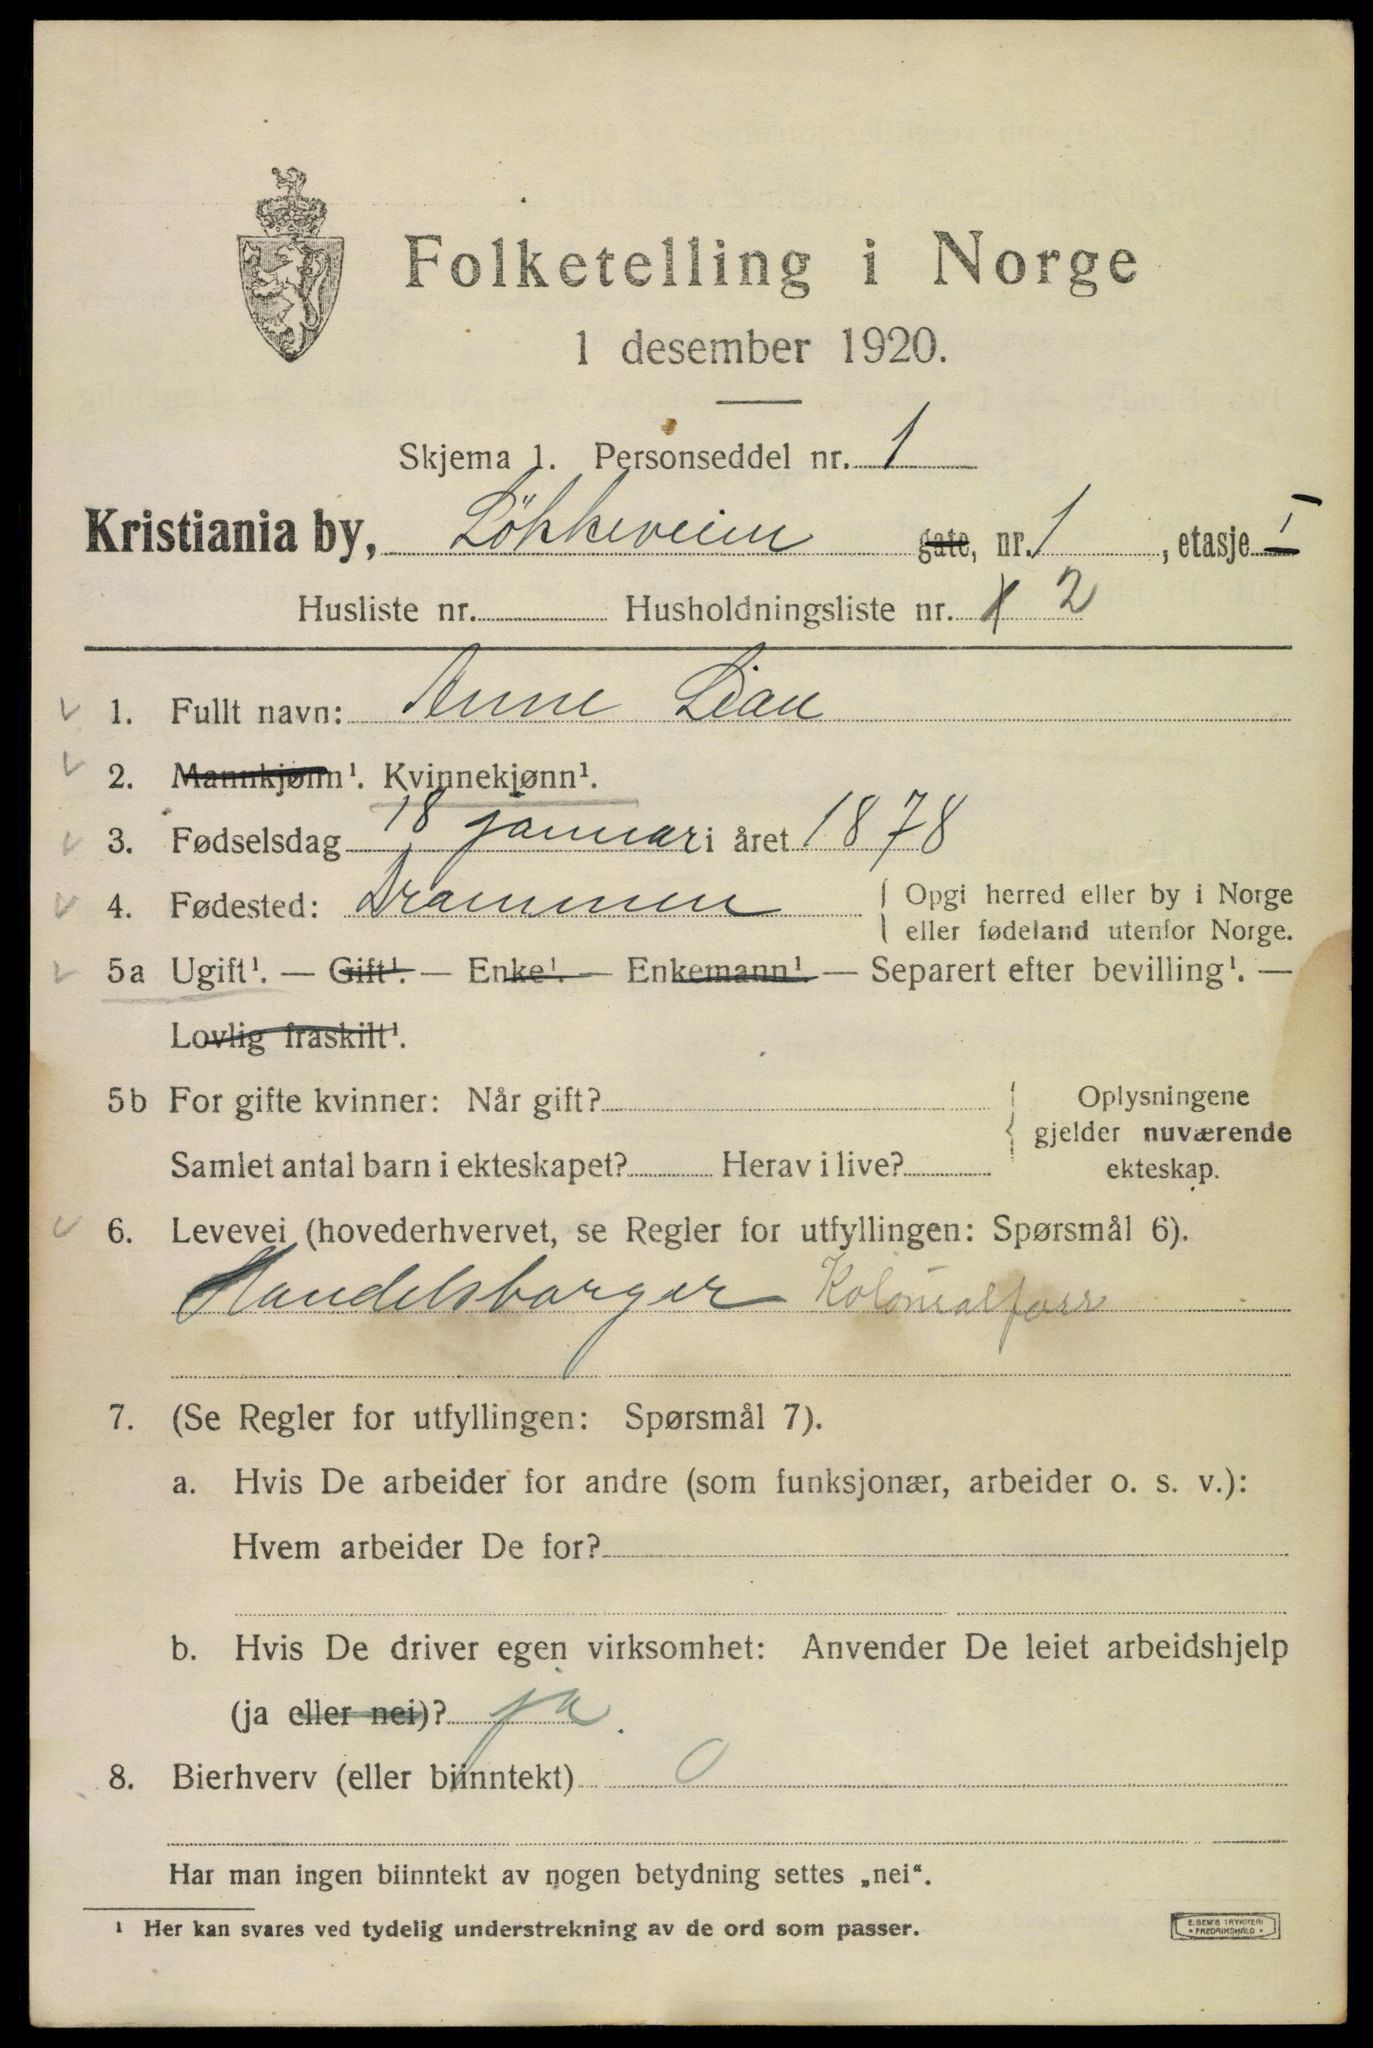 Folketelling i Norge
1 desember 1920.
Skjema 1. Personseddel nr. 1
Kristiania by, Lökkeveien gate, nr. 1, etasje I
Husliste nr. Husholdningsliste nr. 2
1. Fullt navn: Anne Lian
2. Mannkjønn¹. Kvinnekjønn¹.
3. Fødselsdag 18 januar i året 1878
4. Fødested: Drammen Opgi herred eller by i Norge
eller fødeland utenfor Norge.
5a Ugift¹. — Gift¹. — Enke¹. — Enkemann¹. — Separert efter bevilling¹. —
Lovlig fraskilt¹.
5b For gifte kvinner: Når gift? Oplysningene
gjelder nuværende
Samlet antal barn i ekteskapet? Herav i live? ekteskap.
6. Levevei (hovederhvervet, se Regler for utfyllingen: Spørsmål 6).
Handelsborger Kolonialforr
7. (Se Regler for utfyllingen: Spørsmål 7).
a. Hvis De arbeider for andre (som funksjonær, arbeider o. s. v.):
Hvem arbeider De for?
b. Hvis De driver egen virksomhet: Anvender De leiet arbeidshjelp
(ja eller nei)? ja.
8. Bierhverv (eller biinntekt) 0
Har man ingen biinntekt av nogen betydning settes „nei“.
¹ Her kan svares ved tydelig understrekning av de ord som passer.
E. SEM'S TRYKKERI
• FREDRIKSHALD •